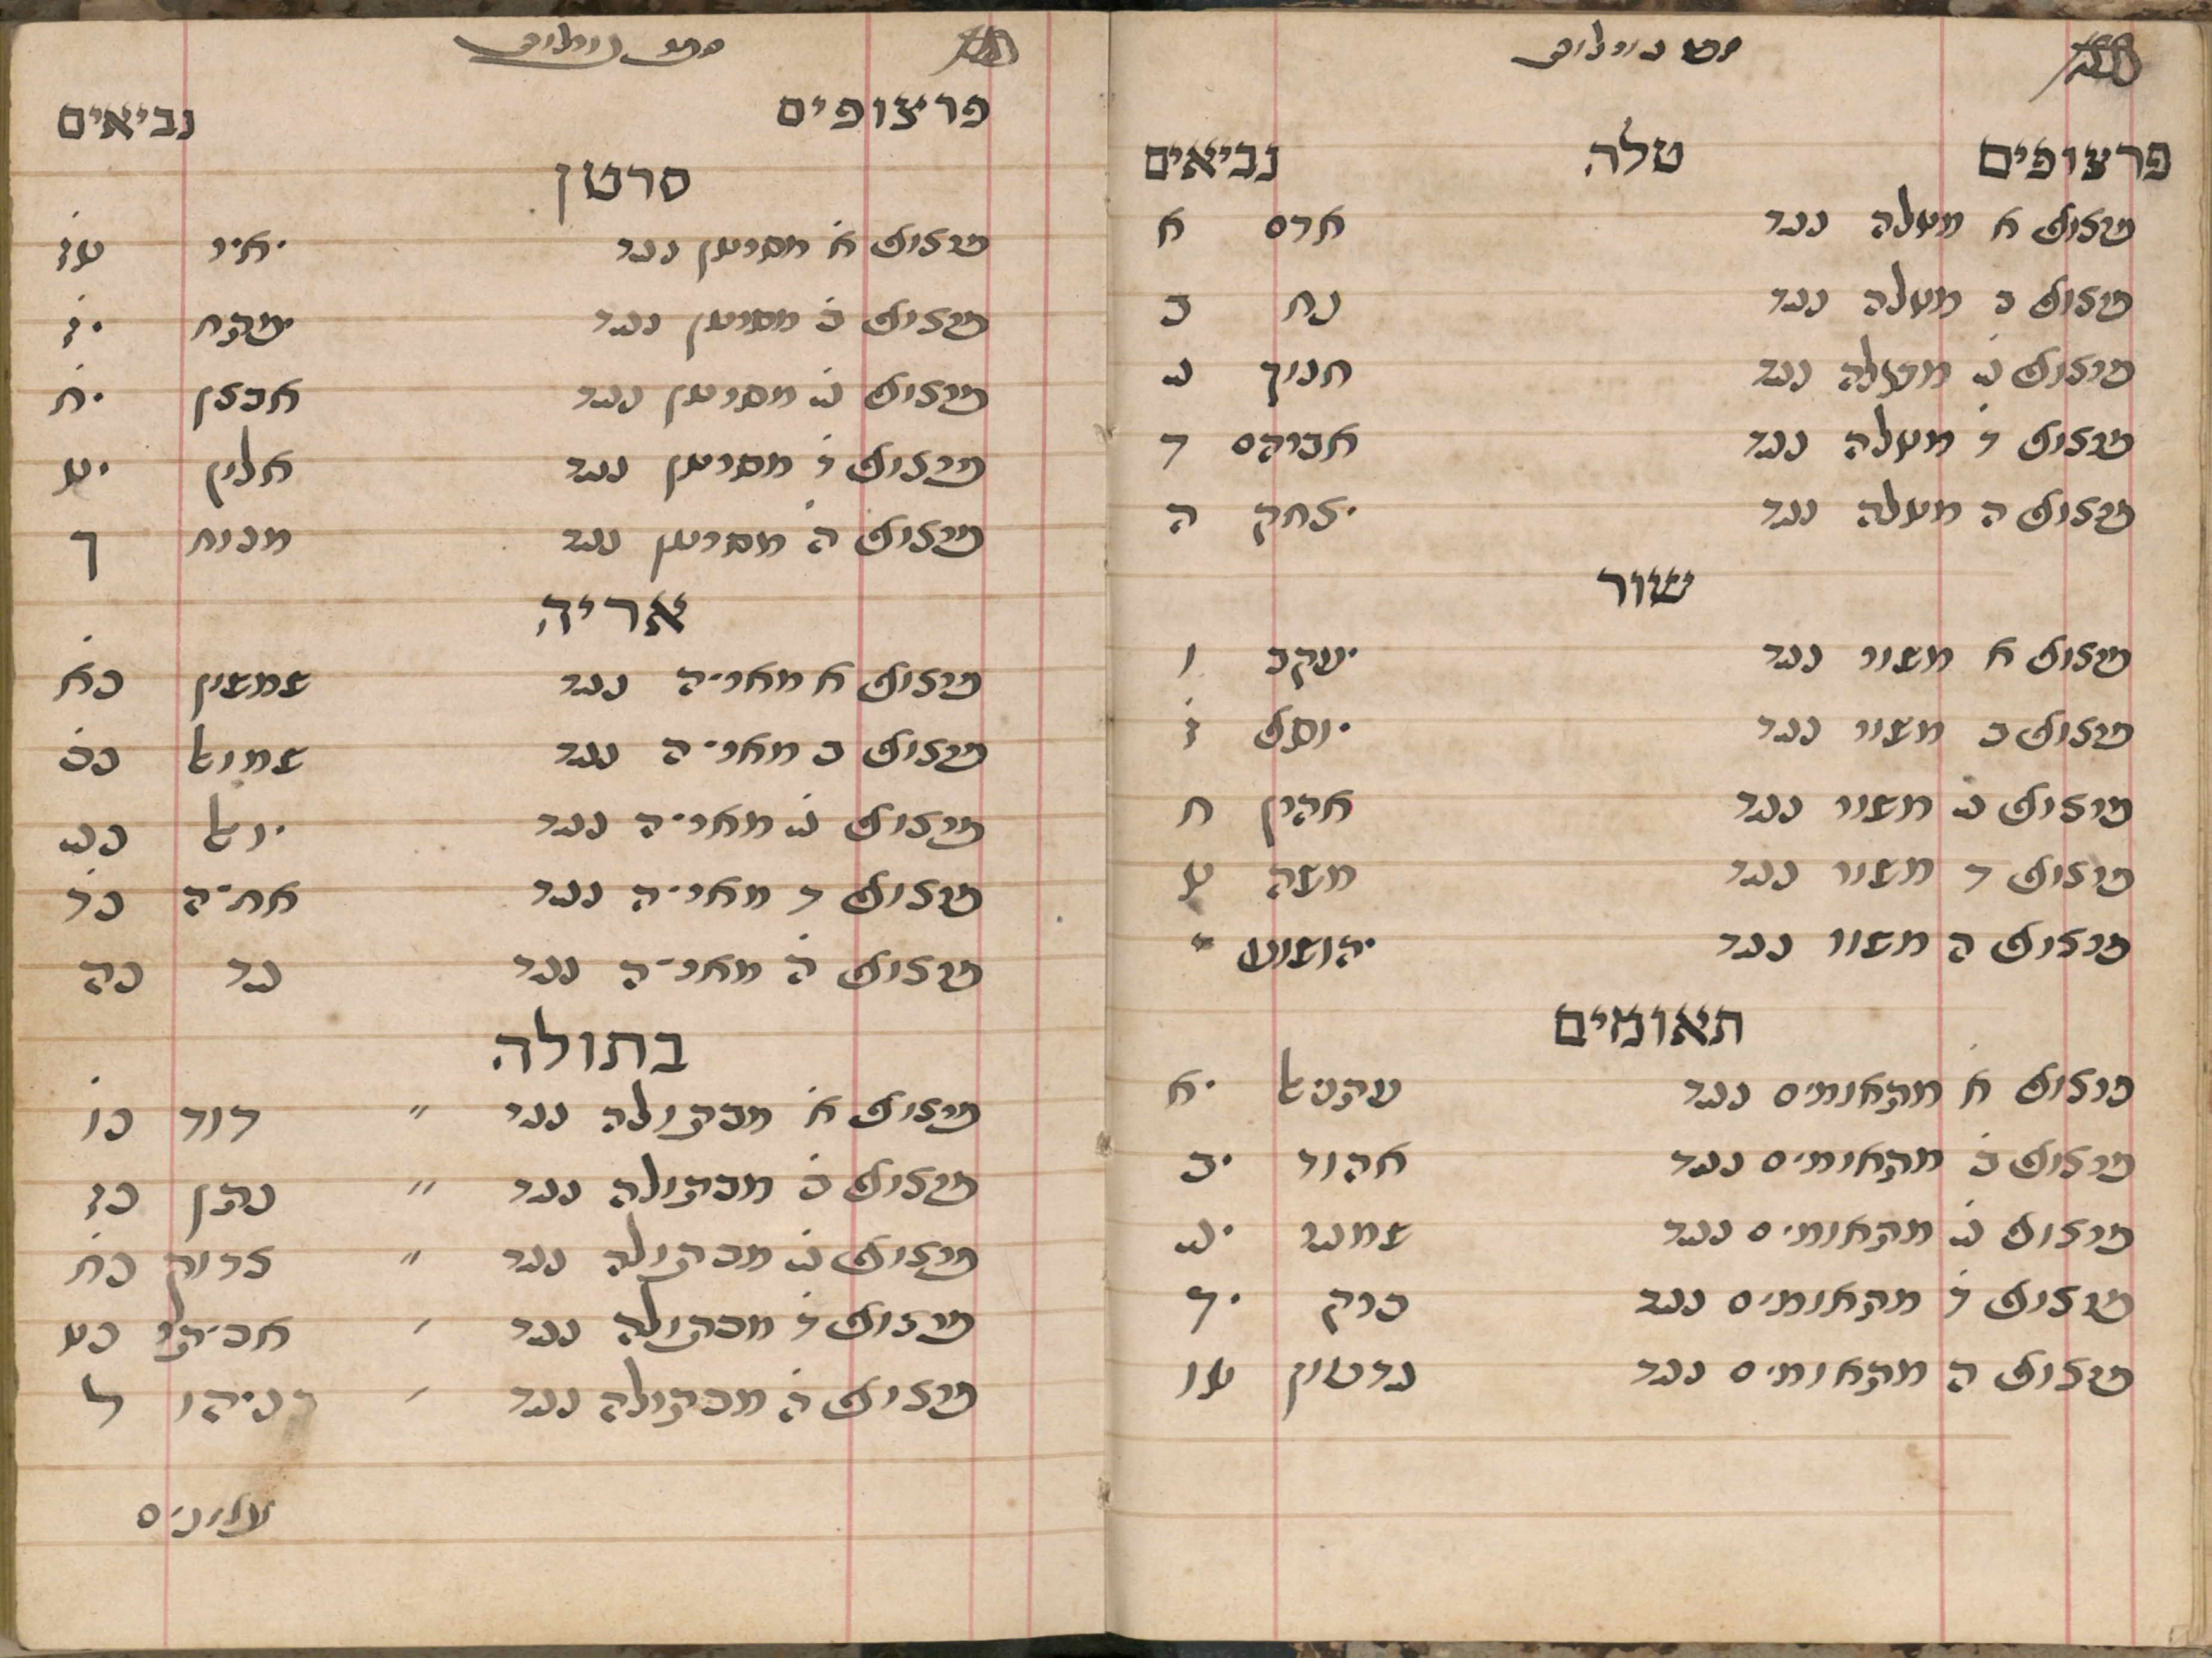 פרצופים טלה נביאים
פרצוף א מטלה נגד אדם א
פרצוף ב מטלה נגד נח ב
פרצוף ג מטלה נגד חנוך ג
פרצוף ד מטלה נגד אברהם ד
פרצוף ה מטלה נגד יצחק ה
שור
פרצוף א משור נגד יעקב ו
פרצוף ב משור נגד יוסף ז
פרצוף ג משור נגד אהרן ח
פרצוף ד משור נגד משה ט
פרצוף ה משור נגד יהושוע י
תאומים
פרצוף א מתאומים נגד עתניאל יא
פרצוף ב מתאומים נגד אהוד יב
פרצוף ג מתאומים נגד שמגר יג
פרצוף ד מתאומים נגד ברק יד
פרצוף ה מתאומים נגד גדעון טו
פרצופים נביאים
סרטן
פרצוף א מסרטן נגד יאיר טז
פרצוף ב מסרטן נגד יפתח יז
פרצוף ג מסרטן נגד אבצן יח
פרצוף ד מסרטן נגד אלון יט
פרצוף ה מסרטן נגד מנוח ך
אריה
פרצוף א מאריה נגד שמשון כא
פרצוף ב מאריה נגד שמואל כב
פרצוף ג מאריה נגד יואל כג
פרצוף ד מאריה נגד אחיה כד
פרצוף ה מאריה נגד גד כה
בתולה
פרצוף א מבתולה נגד " דוד כו
פרצוף ב מבתולה נגד " נתן כז
פרצוף ג מבתולה נגד " צדוק כח
פרצוף ד מבתולה נגד אביתר כט
פרצוף ה מבתולה נגד בניהו ל